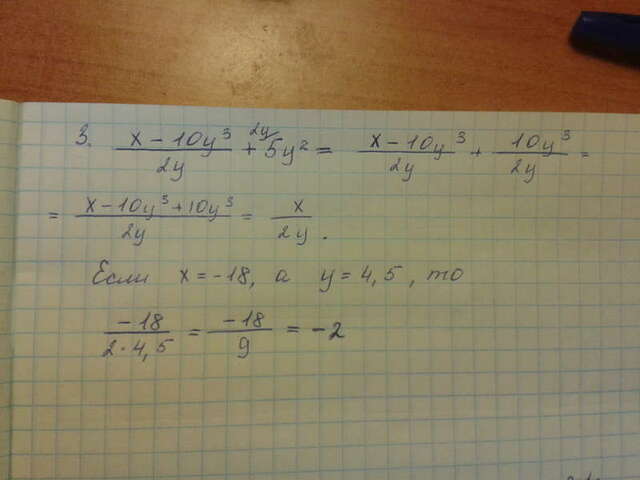 3. (x - 10y³)/2y + 5y² 2y/ = (x - 10y³)/2y + 10y³/2y =
= (x - 10y³ + 10y³)/2y = x/2y.
Если x = -18, а y = 4,5, то
-18/(2·4,5) = -18/9 = -2